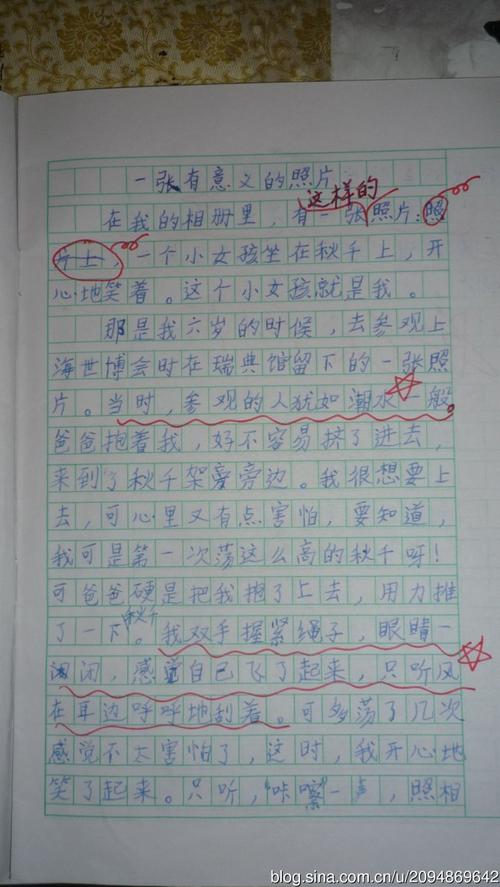 一张有意义的照片
这样的
在我的相册里，有一张照片：照
片上，一个小女孩坐在秋千上，开
心地笑着。这个小女孩就是我。
那是我六岁的时候，去参观上
海世博会时在瑞典馆留下的一张照
片。当时，参观的人犹如潮水一般。
爸爸抱着我，好不容易挤了进去，
来到了秋千架旁边。我很想要上
去，可心里又有点害怕，要知道，
我可是第一次荡这么高的秋千呀！
可爸爸硬是把我抱了上去，用力推
了一下秋千。我双手握紧绳子，眼睛一
闭，感觉自己飞了起来，只听风
在耳边呼呼地刮着。可多荡了几次
感觉不太害怕了，这时，我开心地
笑了起来。只听，“咔嚓”一声，照相
blog.sina.com.cn/u/2094869642